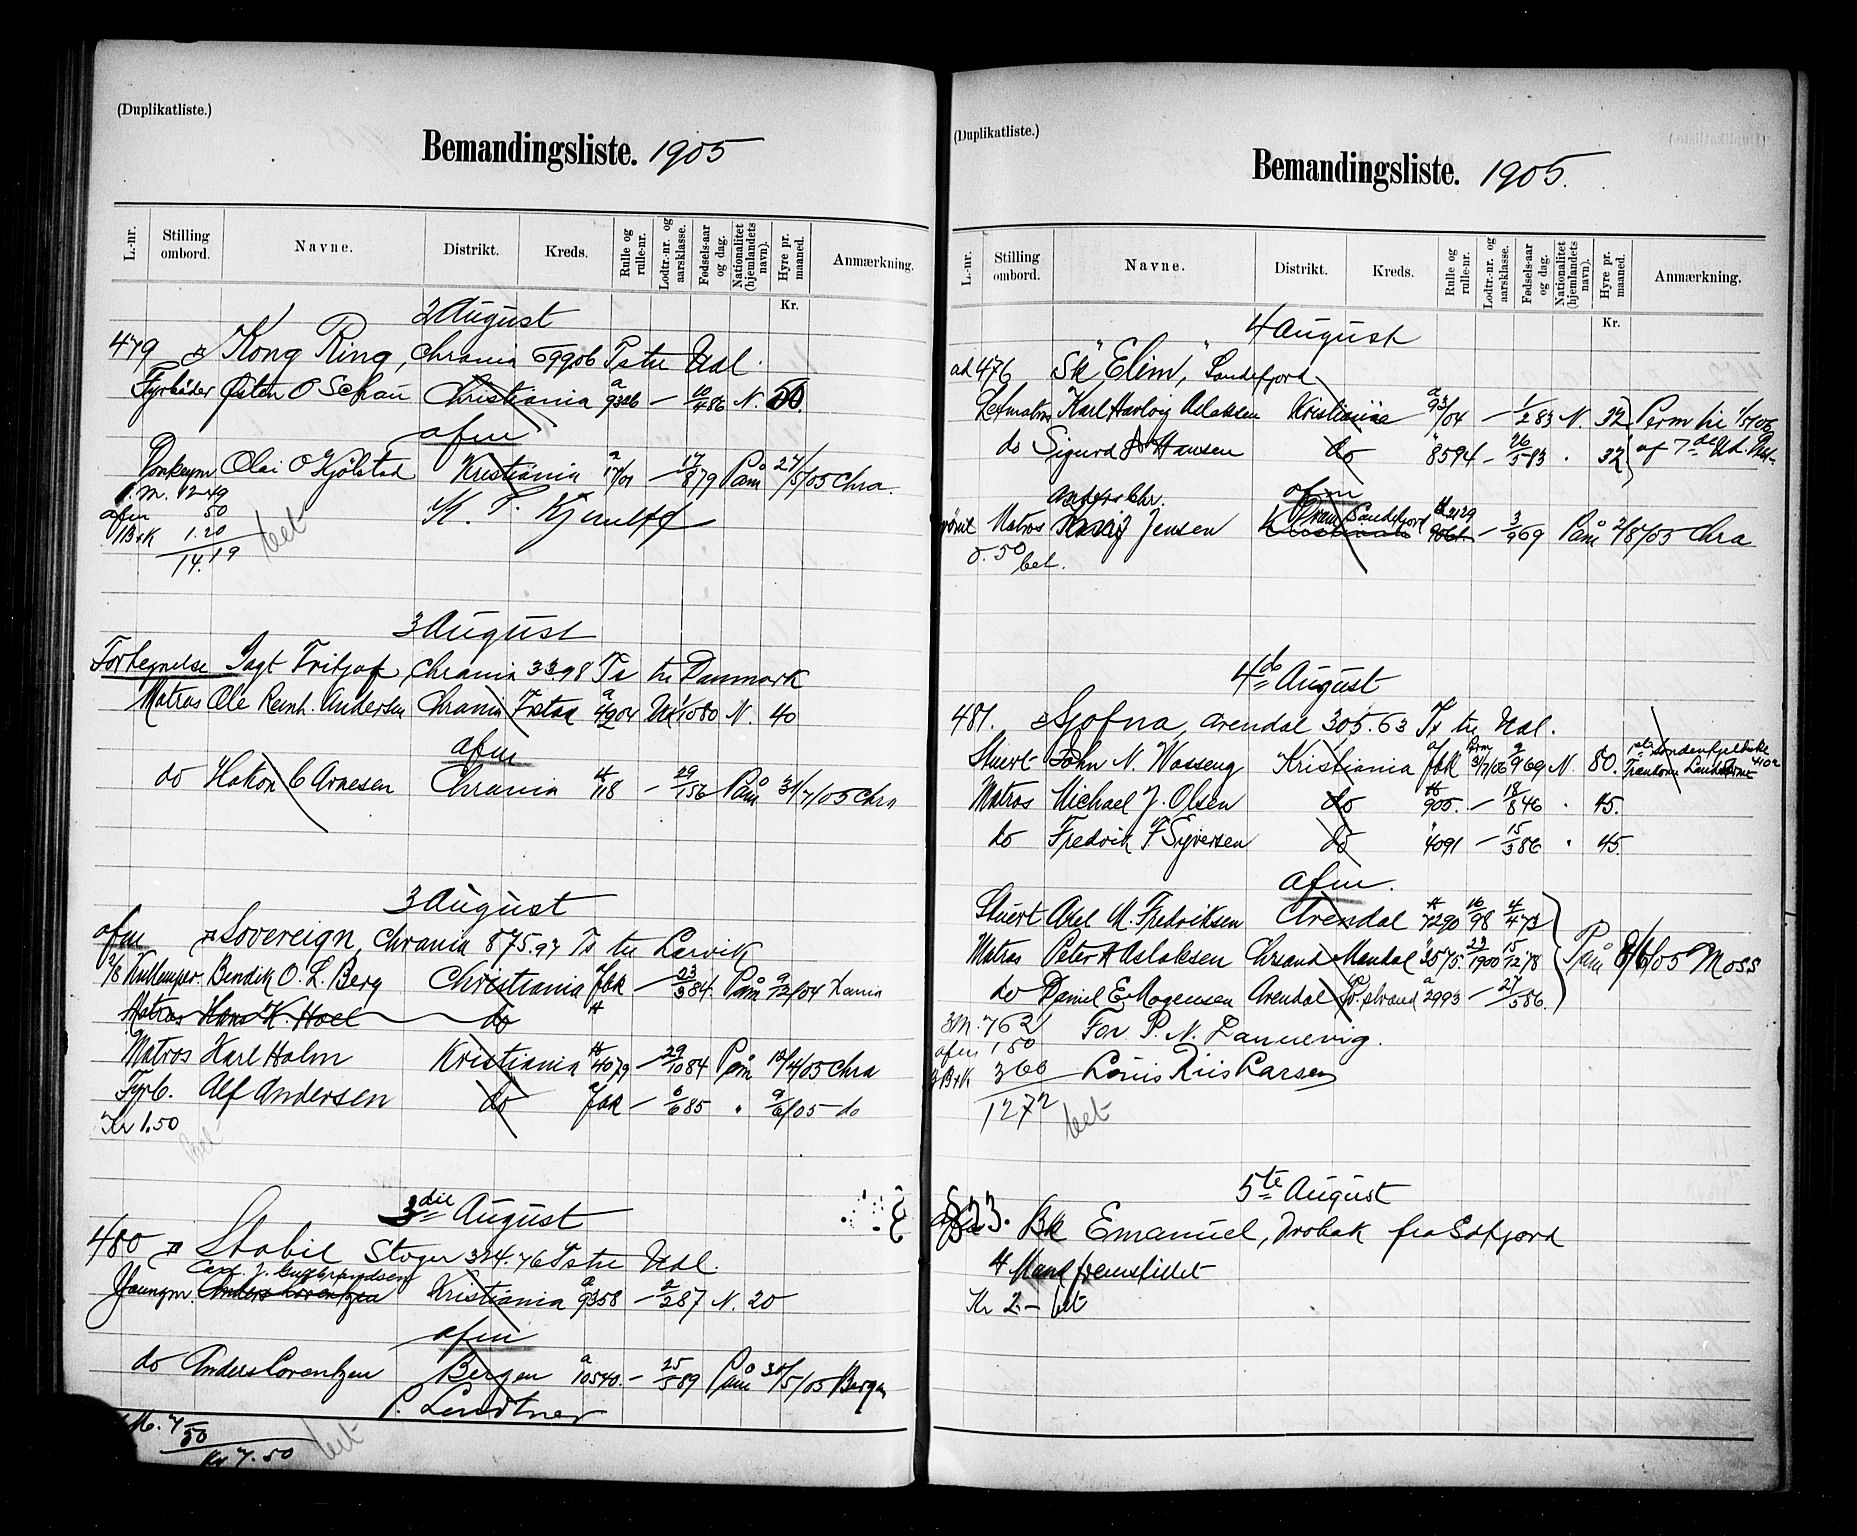 (Duplikatliste.)
Bemandingsliste. 1905
L.-nr. Stilling ombord. Navne. Distrikt. Kreds. Rulle og rulle-nr. Lodtr.-nr. og aarsklasse. Fødsels-aar og dag. Nationalitet (hjemlandets navn). Hyre pr. maaned. Anmærkning.
Kr.
2 August
479 Kong Ring, Chrania 69906 Ts til Udl.
Fyrbøder Østen O Schau Christiania a 9326 — 10/4 86 N. 50.
afm
Donkeym Olai O Kjølstad Kristiania a 17/01 — 17/8 79 Paam 27/5/05 Chra.
1 M. 12.49
afm 50
1B+K 1.20
14.19 bet
3 August
Fortegnelse Jagt Fritjof, Chrania 33.98 Ts til Danmark
Matros Ole Reinh. Andersen Chrania Fstad a 4204 1/10 80 N. 40
afm
do Hakon C Arnesen Chrania 118 — 29/1 56 Paam 31/7/05 Chra
3 August
afm Sovereign, Chrania 875.97 Ts til Larvik
2/8 Kullemper. Bendik O. L. Berg Christiania fbk — 23/3 84 Paam 9/12/04
Matros Hans K. Hoel do
Matros Karl Holm Kristiania 4079 — 29/10 84 Paam 12/4/05 Chra
Fyrb. Alf Andersen do fbk — 6/6 85 " 9/6/05 do
Kr 1.50
bet
3die August
480 Stabil Stvger 324.76 Ts til Udl.
J. Gudbrandsen
Youngm. Anders Lorentzen Kristiania a 9358 — 2/2 87 N. 20
afm
do Anders Lorentzen Bergen a 10540. — 25/5 89 Paam 30/5/05 Bergen
P. Lindtner
1 M. 7
50
Kr 7.50 bet
(Duplikatliste.)
Bemandingsliste. 1905.
L.-nr. Stilling ombord. Navne. Distrikt. Kreds. Rulle og rulle-nr. Lodtr.-nr. og aarsklasse. Fødsels-aar og dag. Nationalitet (hjemlandets navn). Hyre pr. maaned. Anmærkning.
Kr.
4 August
ad 476 Sk "Elim," Sandefjord
Letmatros Karl Harlvig Aslaksen Kristiania a 93/04 — 1/2 83 N. 32 Perm til 1/5/06
do Sigurd Hansen do " 8594 — 26/5 83 . 32 af 7de
afm
Anders Chr.
rømt Matros Jensen Dram Sandefjord 2129 — 3/9 69 Paam 2/8/05 Chra
0.50
bet.
4de August
481. Sjofna, Arendal 305.63 Ts til Udl.
Stuert John N. Wasseng Kristiania a fbk 31/7/06 9/9 69 N. 80.
Matros Michael J. Olsen do 905. — 18/8 46 . 45.
do Fredrik F Syversen do " 4091 — 15/3 86 . 45.
afm.
Stuert Axel M. Fredriksen Arendal 7290 16/98 4/4 73
Matros Peter A Aslaksen Chrsand Mandal 3575. 23/1900 15/12 78 Paam 8/6/05 Moss
do Daniel E. Mogensen Arendal a 2993 — 27/5 86.
3 M. 7.62 For P. N. Lannevig.
afm 1 50
3 B+K 3 60 Louis Kiis Larsen
12 72 bet
5te August
§23. Bk Emanuel, Drobak fra Sofjord
4 Mand fremstillet
Kr 2.— bet